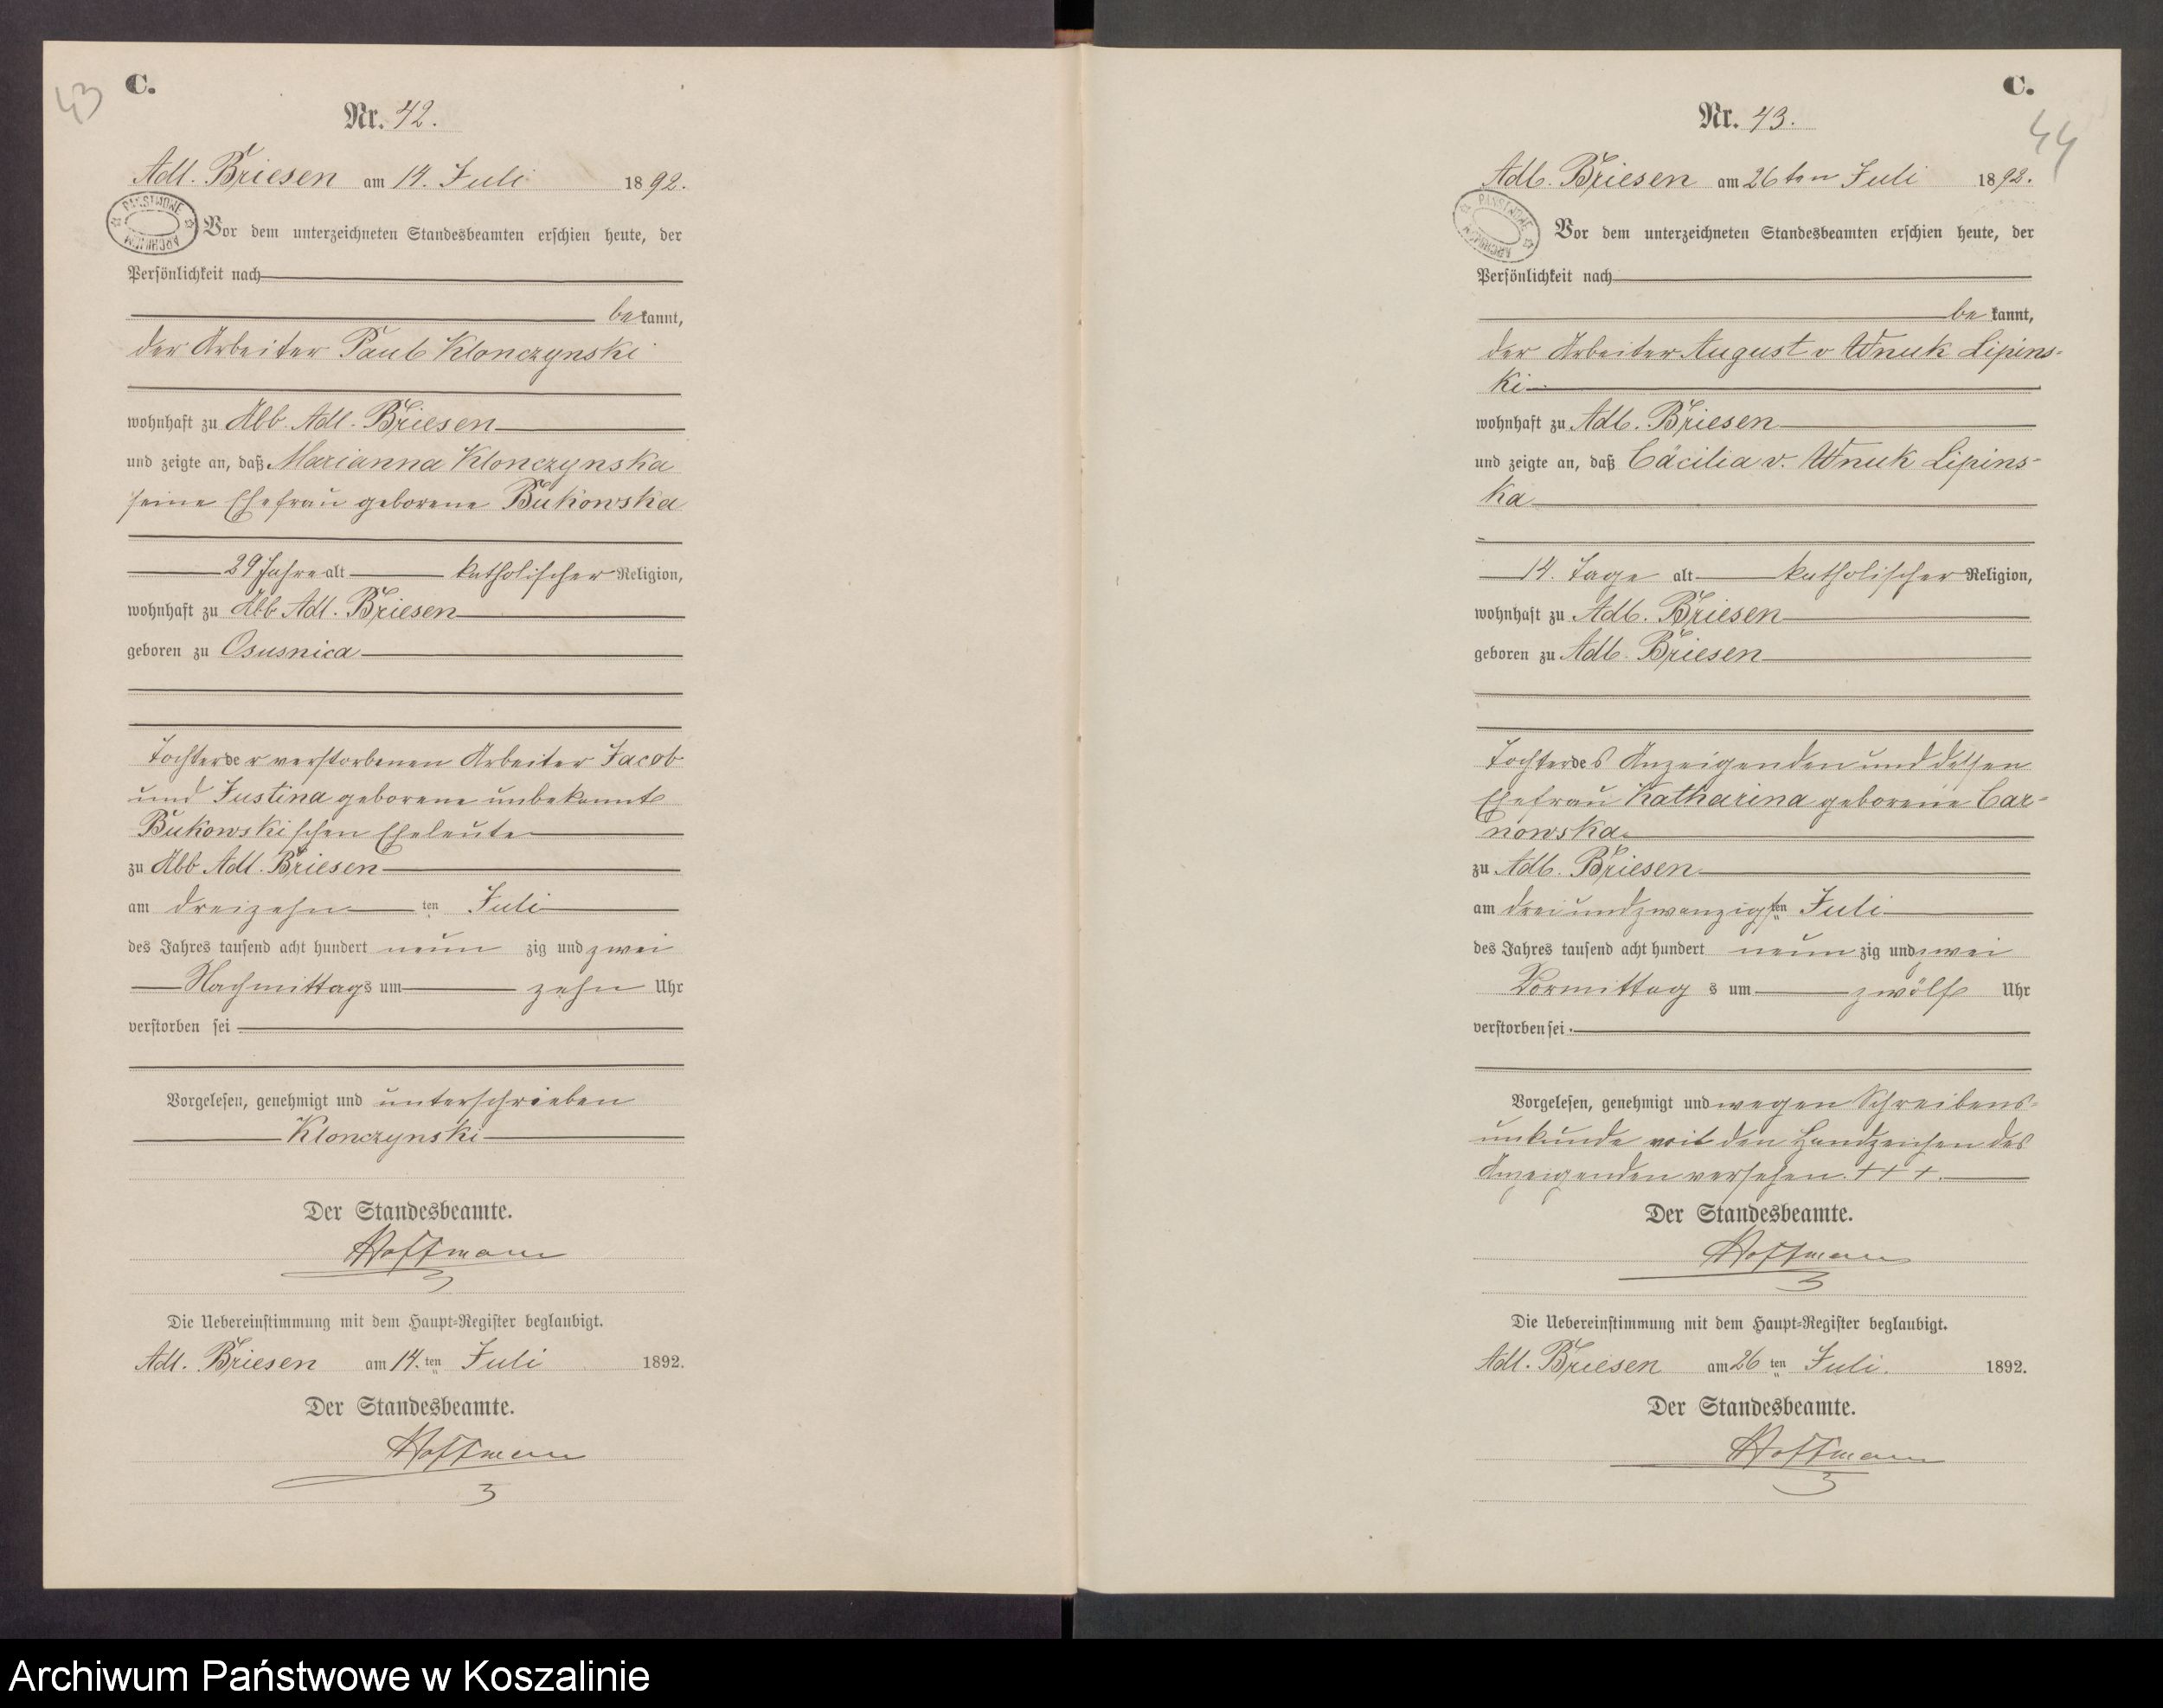 43
C.
Nr. 42.
Adl. Briesen am 14. Juli 1892.
PAŃSTWOWE ARCHIWUM
Vor dem unterzeichneten Standesbeamten erschien heute, der
Persönlichkeit nach
bekannt,
der Arbeiter Paul Klonczynski
wohnhaft zu Abb. Adl. Briesen
und zeigte an, daß Marianna Klonczynska
seine Ehefrau geborene Bukowska
29 Jahre alt katholischer Religion,
wohnhaft zu Abb Adl. Briesen
geboren zu Osusnica
Tochter der verstorbenen Arbeiter Jacob
und Justina geborene unbekannt
Bukowskischen Eheleute
zu Abb Adl. Briesen
am dreizehn ten Juli
des Jahres tausend acht hundert neun zig und zwei
Nachmittags um zehn Uhr
verstorben sei
Vorgelesen, genehmigt und unterschrieben
Klonczynski
Der Standesbeamte.
Hoffmann
Die Uebereinstimmung mit dem Haupt-Register beglaubigt.
Adl. Briesen am 14. ten Juli 1892.
Der Standesbeamte.
Hoffmann
C.
44
Nr. 43.
Adl. Briesen am 26ten Juli 1892.
PAŃSTWOWE ARCHIWUM
Vor dem unterzeichneten Standesbeamten erschien heute, der
Persönlichkeit nach
be kannt,
der Arbeiter August v Wnuk Lipins-
ki
wohnhaft zu Adl. Briesen
und zeigte an, daß Cäcilia v. Wnuk Lipins-
ka
14. Tage alt katholischer Religion,
wohnhaft zu Adl. Briesen
geboren zu Adl. Briesen
Tochter des Anzeigenden und dessen
Ehefrau Katharina geborene Car-
nowska
zu Adl. Briesen
am dreiundzwanzigsten Juli
des Jahres tausend acht hundert neun zig und zwei
Vormittag s um zwölf Uhr
verstorben sei.
Vorgelesen, genehmigt und wegen Schreibens-
unkunde mit den Handzeichen des
Anzeigenden versehen. + + +.
Der Standesbeamte.
Hoffmann
Die Uebereinstimmung mit dem Haupt-Register beglaubigt.
Adl. Briesen am 26 ten Juli. 1892.
Der Standesbeamte.
Hoffmann
Archiwum Państwowe w Koszalinie